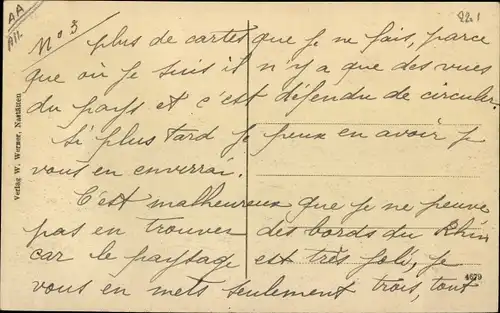 AA
All.
22.1
No 3 plus de cartes que je ne fais, parce
que où je suis il n y a que des vues
du pays et c'est défendu de circuler.
si plus tard je peux en avoir je
vous en enverrai.
C'est malheureux que je ne peuve
pas en trouver des bords du Rhin
car le paysage est très joli, je
vous en mets seulement trois, tout
Verlag W. Werner, Nastätten
4679